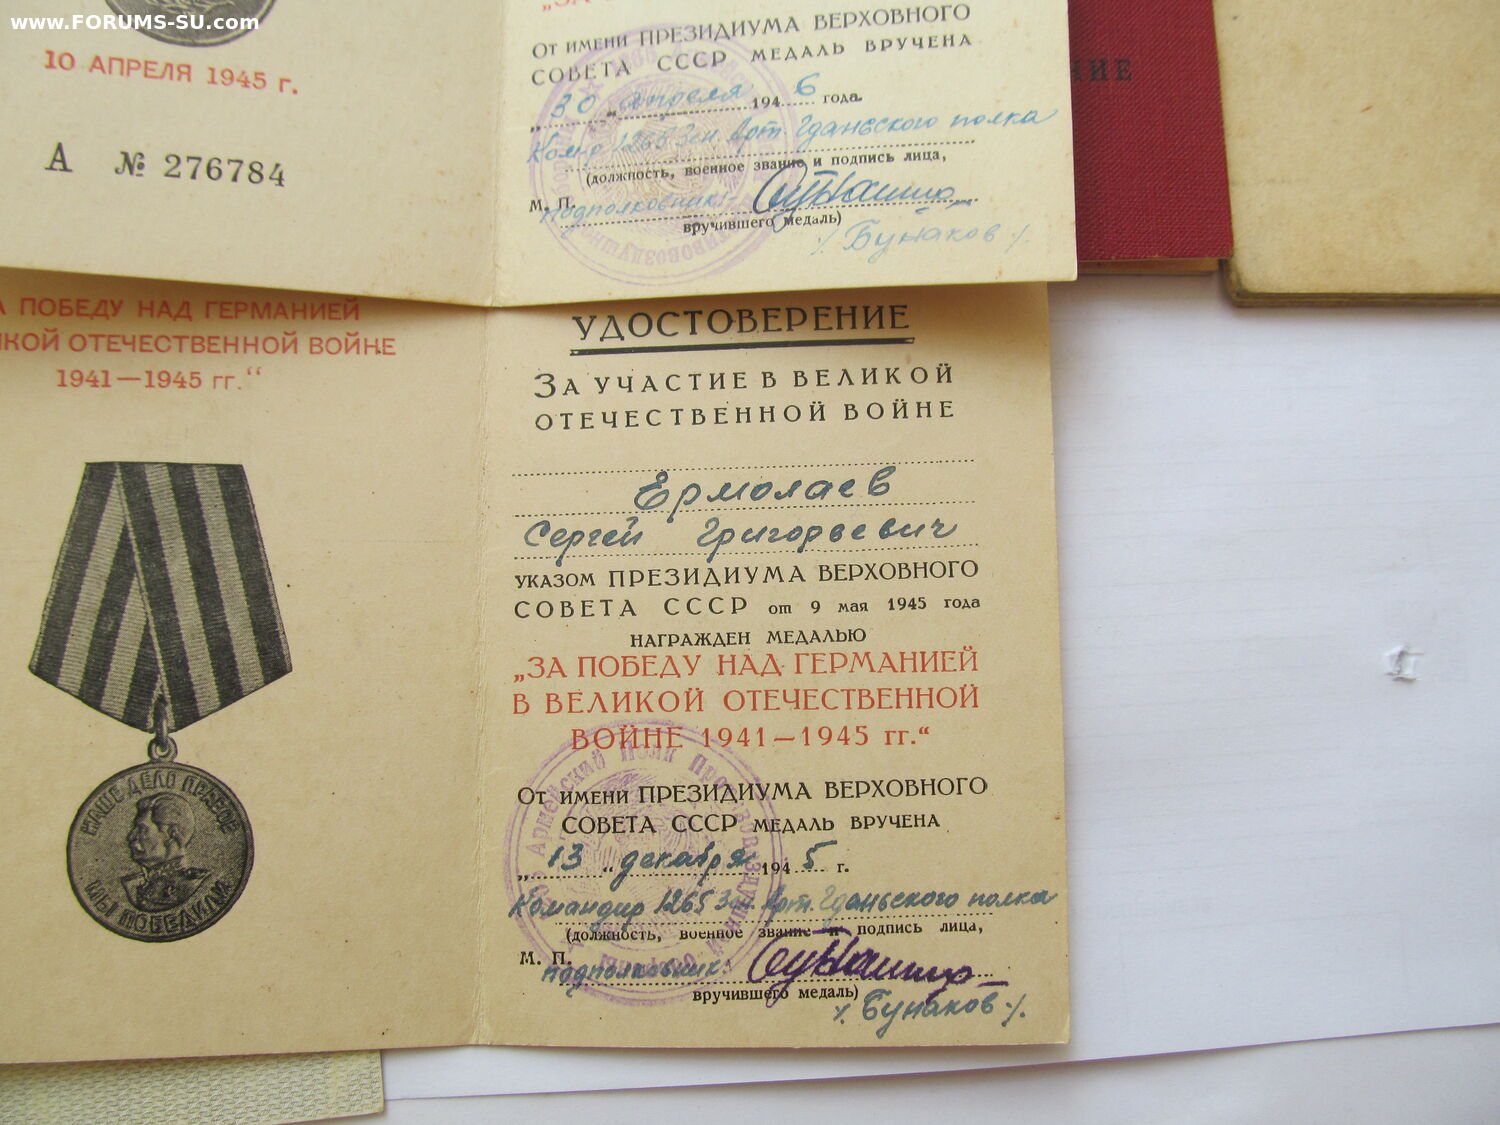 www.FORUMS-SU.com
10 АПРЕЛЯ 1945 г.
А № 276784
„ЗА
От имени ПРЕЗИДИУМА ВЕРХОВНОГО
СОВЕТА СССР МЕДАЛЬ ВРУЧЕНА
„30“ апреля 1946 года.
Ком-р 1265 Зен. Арт. Гданьского полка
(должность, военное звание и подпись лица,
М. П. подполковник:
вручившего медаль)
/Бунаков/.
НИЕ
А ПОБЕДУ НАД ГЕРМАНИЕЙ
ИКОЙ ОТЕЧЕСТВЕННОЙ ВОЙНЕ
1941—1945 гг.“
НАШЕ ДЕЛО ПРАВОЕ
МЫ ПОБЕДИЛИ
УДОСТОВЕРЕНИЕ
ЗА УЧАСТИЕ В ВЕЛИКОЙ
ОТЕЧЕСТВЕННОЙ ВОЙНЕ
Ермолаев
Сергей Григорьевич
УКАЗОМ ПРЕЗИДИУМА ВЕРХОВНОГО
СОВЕТА СССР от 9 мая 1945 года
НАГРАЖДЕН МЕДАЛЬЮ
„ЗА ПОБЕДУ НАД ГЕРМАНИЕЙ
В ВЕЛИКОЙ ОТЕЧЕСТВЕННОЙ
ВОЙНЕ 1941—1945 гг.“
От имени ПРЕЗИДИУМА ВЕРХОВНОГО
СОВЕТА СССР МЕДАЛЬ ВРУЧЕНА
„13“ декабря 1945 г.
Командир 1265 Зен. Арт. Гданьского полка
(должность, военное звание и подпись лица,
М. П. подполковник:
вручившего медаль)
/Бунаков/.